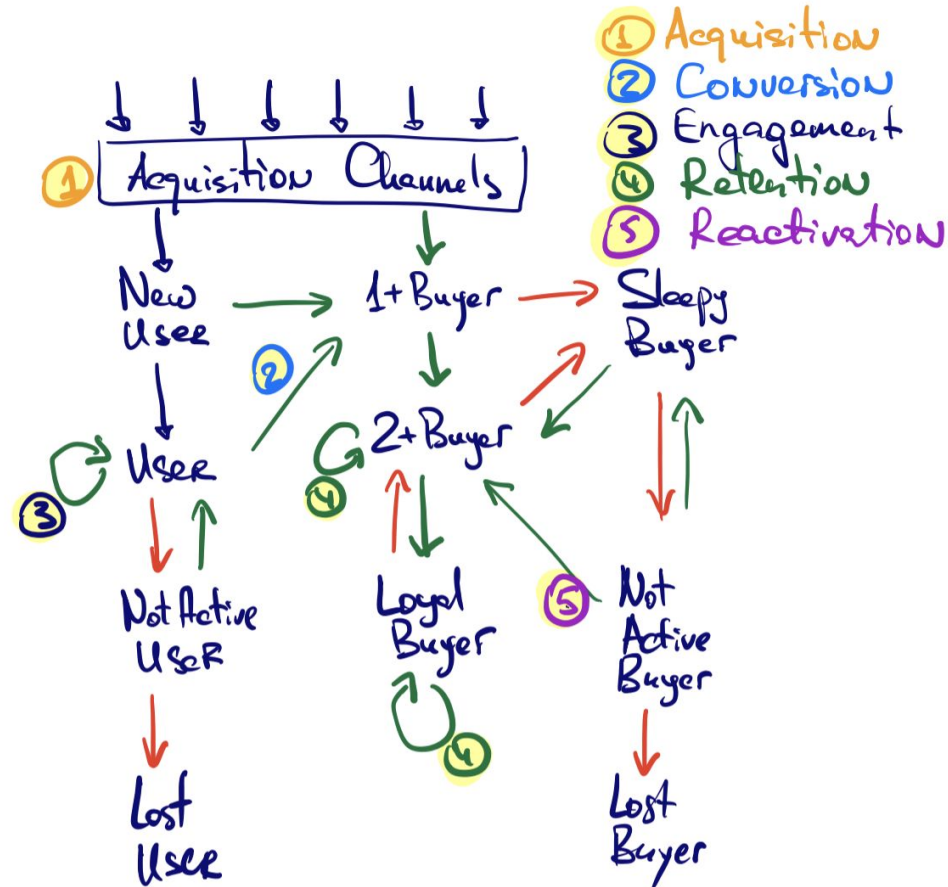 1 Acquisition
2 Conversion
3 Engagement
4 Retention
5 Reactivation
1
Acquisition Channels
New
User
1+Buyer
Sleepy
Buyer
2
User
3
2+Buyer
4
Not Active
User
Loyal
Buyer
4
5
Not
Active
Buyer
Lost
User
Lost
Buyer